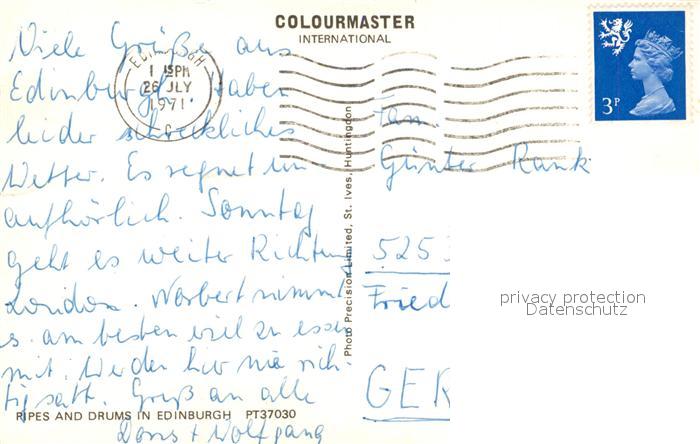 COLOURMASTER
INTERNATIONAL
EDINBURGH
1 15PM
26 JLY
1971
C
3P
Viele Grüße aus
Edinburgh. Haben
leider schreckliches
Wetter. Es regnet un-
aufhörlich. Sonntag
geht es weiter Richtung
London. Norbert nimmt
s. am besten viel zu essen
mit. Werden hier nie rich-
tig satt. Gruß an alle
Doris + Wolfgang
Fam.
Günter Runk
525
Fried
GER
Photo Precision Limited, St. Ives, Huntingdon
PIPES AND DRUMS IN EDINBURGH PT37030
privacy protection
Datenschutz